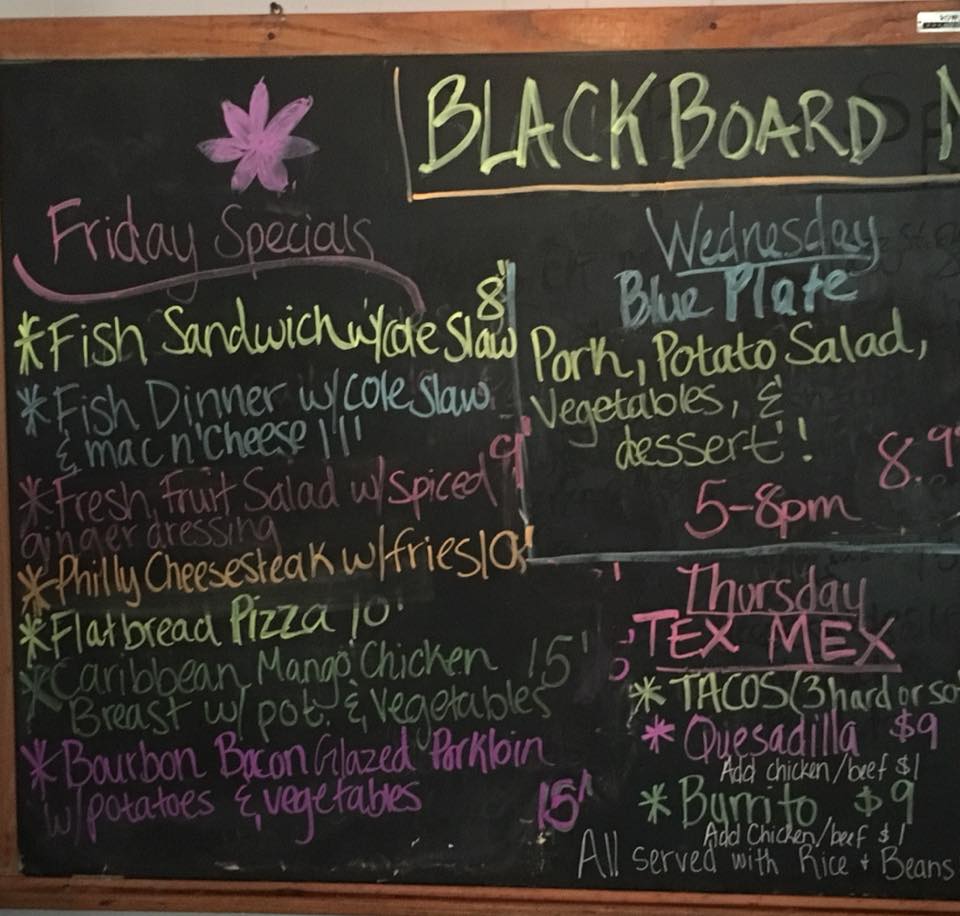 BLACKBOARD
Friday Specials
*Fish Sandwich w/cole slaw 8'
*Fish Dinner w/cole slaw
& mac n' cheese 11'
*Fresh Fruit Salad w/spiced 9'
ginger dressing
*Philly Cheesesteak w/fries 10'
*Flatbread Pizza 10'
*Caribbean Mango Chicken 15'
Breast w/ pot. & Vegetables
*Bourbon Bacon Glazed Porkloin
w/potatoes & vegetables 15'
Wednesday
Blue Plate
Pork, Potato Salad,
Vegetables, &
dessert! 8.9
5-8pm
Thursday
TEX MEX
* TACOS (3 hard or so
* Quesadilla $9
Add chicken/beef $1
* Burrito $9
Add Chicken/beef $1
All served with Rice + Beans